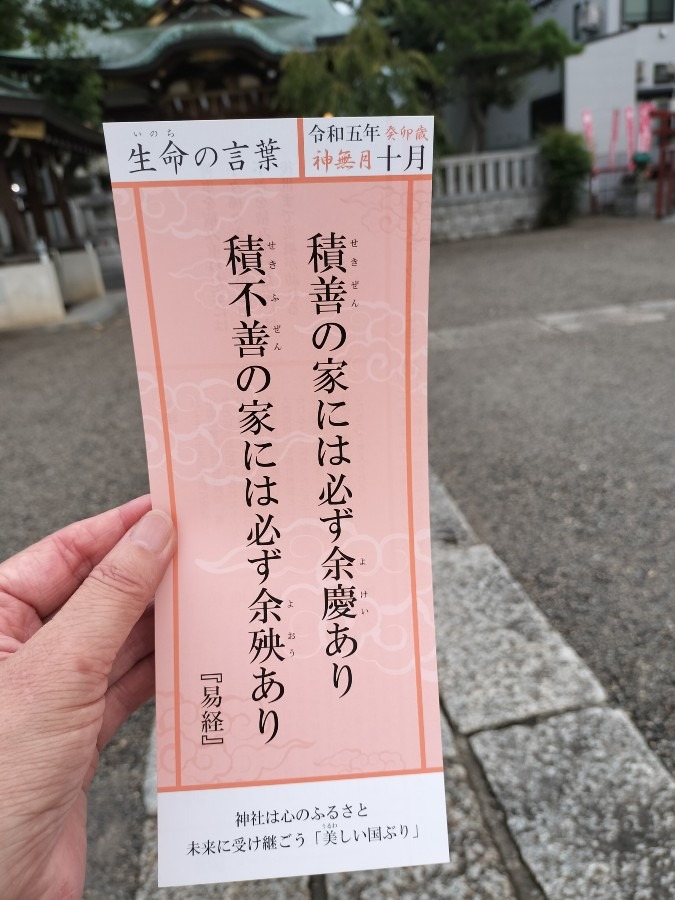 生命の言葉
いのち
令和五年 癸卯歳
神無月 十月
積善の家には必ず余慶あり
せきぜん
よけい
積不善の家には必ず余殃あり
せきふぜん
よおう
『易経』
神社は心のふるさと
未来に受け継ごう「美しい国ぶり」
うるわ